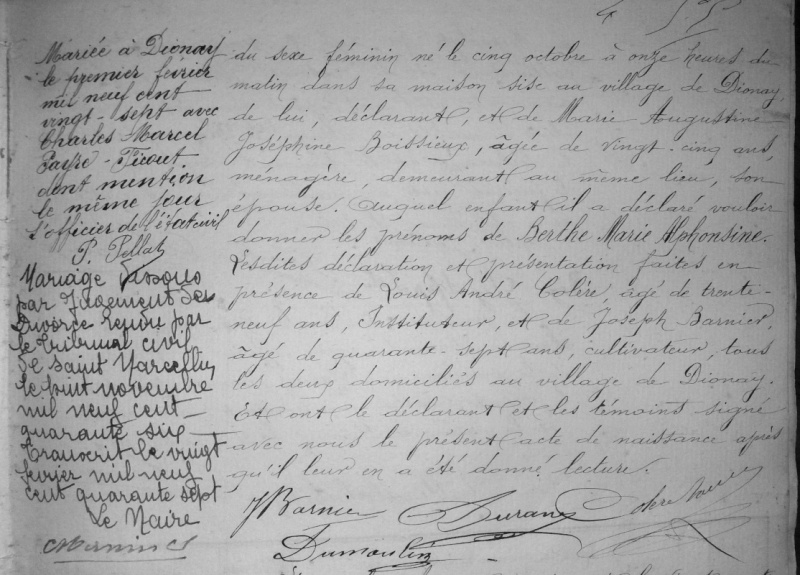 Mariée à Dionay
le premier février
mil neuf cent
vingt-sept avec
Charles Marcel
Payre-Ficout
dont mention
le même jour
l'officier de l'état civil
P. Pellat
Mariage dissous
par Jugement de
Divorce rendu par
le tribunal civil
de Saint Marcellin
le huit novembre
mil neuf cent
quarante six
Transcrit le vingt
février mil neuf
cent quarante sept
Le Maire
du sexe féminin né le cinq octobre à onze heures du
matin dans sa maison sise au village de Dionay,
de lui, déclarant, et de Marie Augustine
Joséphine Boissieux, âgée de vingt-cinq ans,
ménagère, demeurant au même lieu, son
épouse. Auquel enfant il a déclaré vouloir
donner les prénoms de Berthe Marie Alphonsine.
Lesdites déclaration et présentation faites en
présence de Louis André Colère, âgé de trente-
neuf ans, Instituteur, et de Joseph Barnier,
âgé de quarante-sept ans, cultivateur, tous
les deux domiciliés au village de Dionay.
Et ont le déclarant et les témoins signé
avec nous le présent acte de naissance après
qu'il leur en a été donné lecture.
JBarnier Durand
Dumoulin